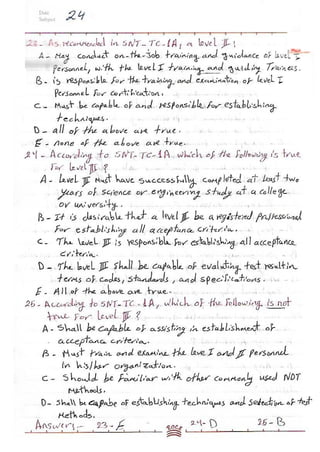 Date
Subject
24
23- As recommended in SNT-TC-1A, a level II:
A- May conduct on-the-Job training and guidance of level I
Personnel, with the level I training and guiding Trainees.
B- is responsible for the training and examination of level I
Personnel for certification.
C- Must be capable of and responsible for establishing
techniques.
D- all of the above are true.
E- none of the above are true.
24- According to SNT-TC-1A which of the following is true
for level III?
A- level III must have successfully completed at least two
years of science or engineering study at a college
or university.
B- It is desirable that a level III be a registered Professional
for establishing all acceptance criteria.
C- The level III is responsible for establishing all acceptance
criteria.
D- The level III shall be capable of evaluating test result in
terms of codes, standards, and specifications.
E. All of the above are true.
25- According to SNT-TC-1A, which of the following is not
true for level III?
A- Shall be capable of assisting in establishment of
acceptance criteria.
B- Must train and examine the level I and II personnel
in his/her organization.
C- Should be familiar with other commonly used NDT
methods.
D- Shall be capable of establishing techniques and selection of test
methods.
Answers:- 23-E 24-D 25-B